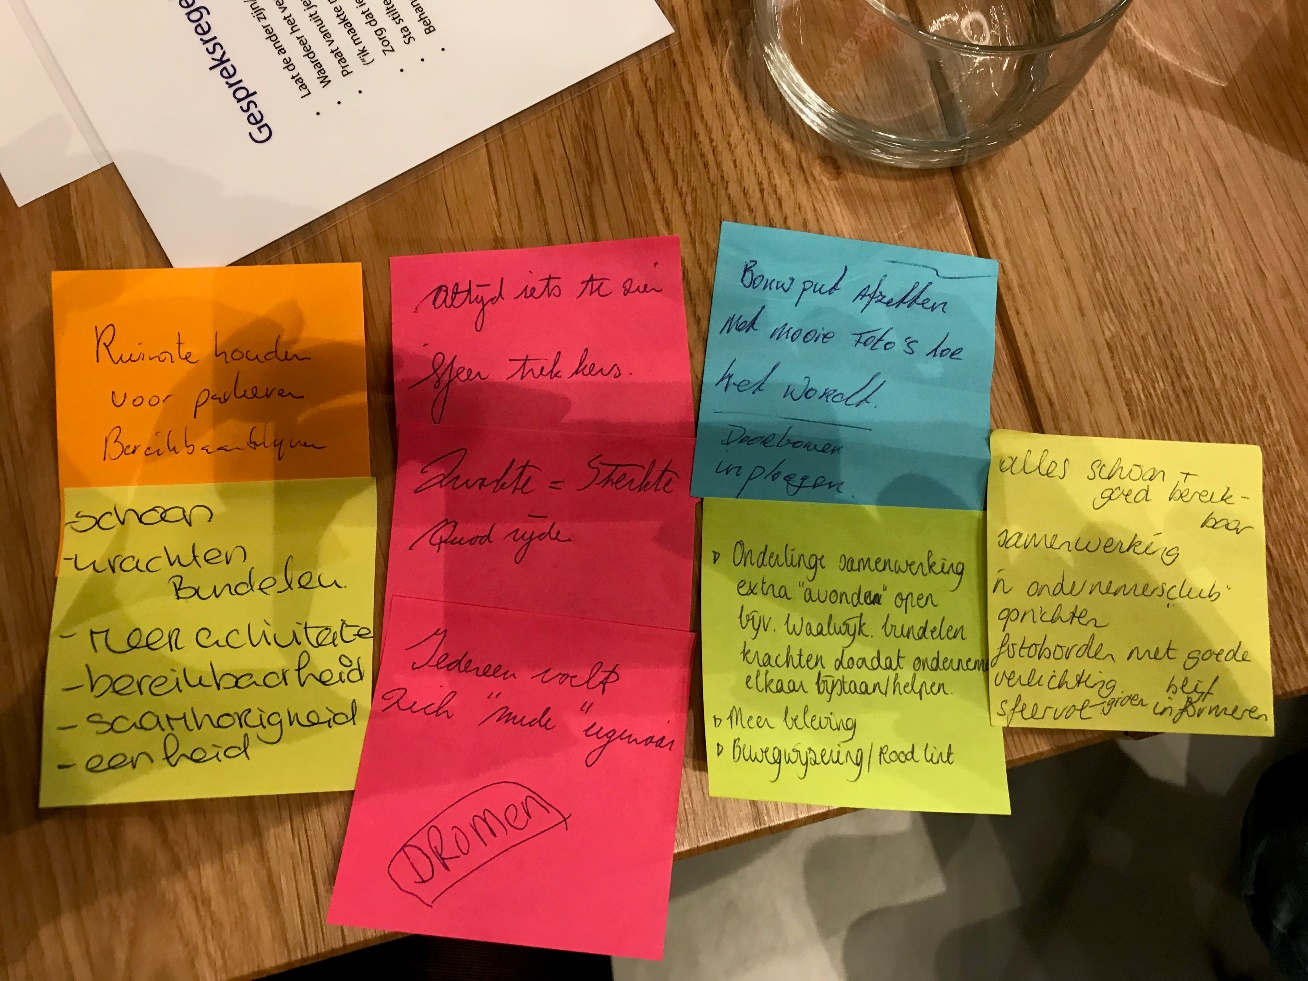 Gespreksrege
Laat de ander zijn/
Waardeer het ve
Praat vanuit je
("Ik maakte
Zorg dat ie
Sta stilte
Behan
Ruimte houden
voor parkeren
Bereikbaar blijven
-schoon
-krachten
Bundelen
- Meer activiteite
- bereikbaarheid
- saamhorigheid
- eenheid
Altijd iets te zien
Sfeer trekkers.
Zwakte = Sterkte
Quod
Iedereen voelt
Zich "mede" eigenaar
DROMEN
Bouwput Afzetten
Met mooie Foto's hoe
het wordt.
Doorbouwen
in ploegen.
Onderlinge samenwerking
extra "avonden" open
bijv. Waalwijk. bundelen
krachten doordat ondernem
elkaar bijstaan/helpen.
Meer beleving
Bewegwijzering/Rood lint
alles schoon +
goed bereik-
baar
samenwerking
'n ondernemersclub
oprichten
fotoborden met goede
verlichting blijf
sfeervol groen informeren